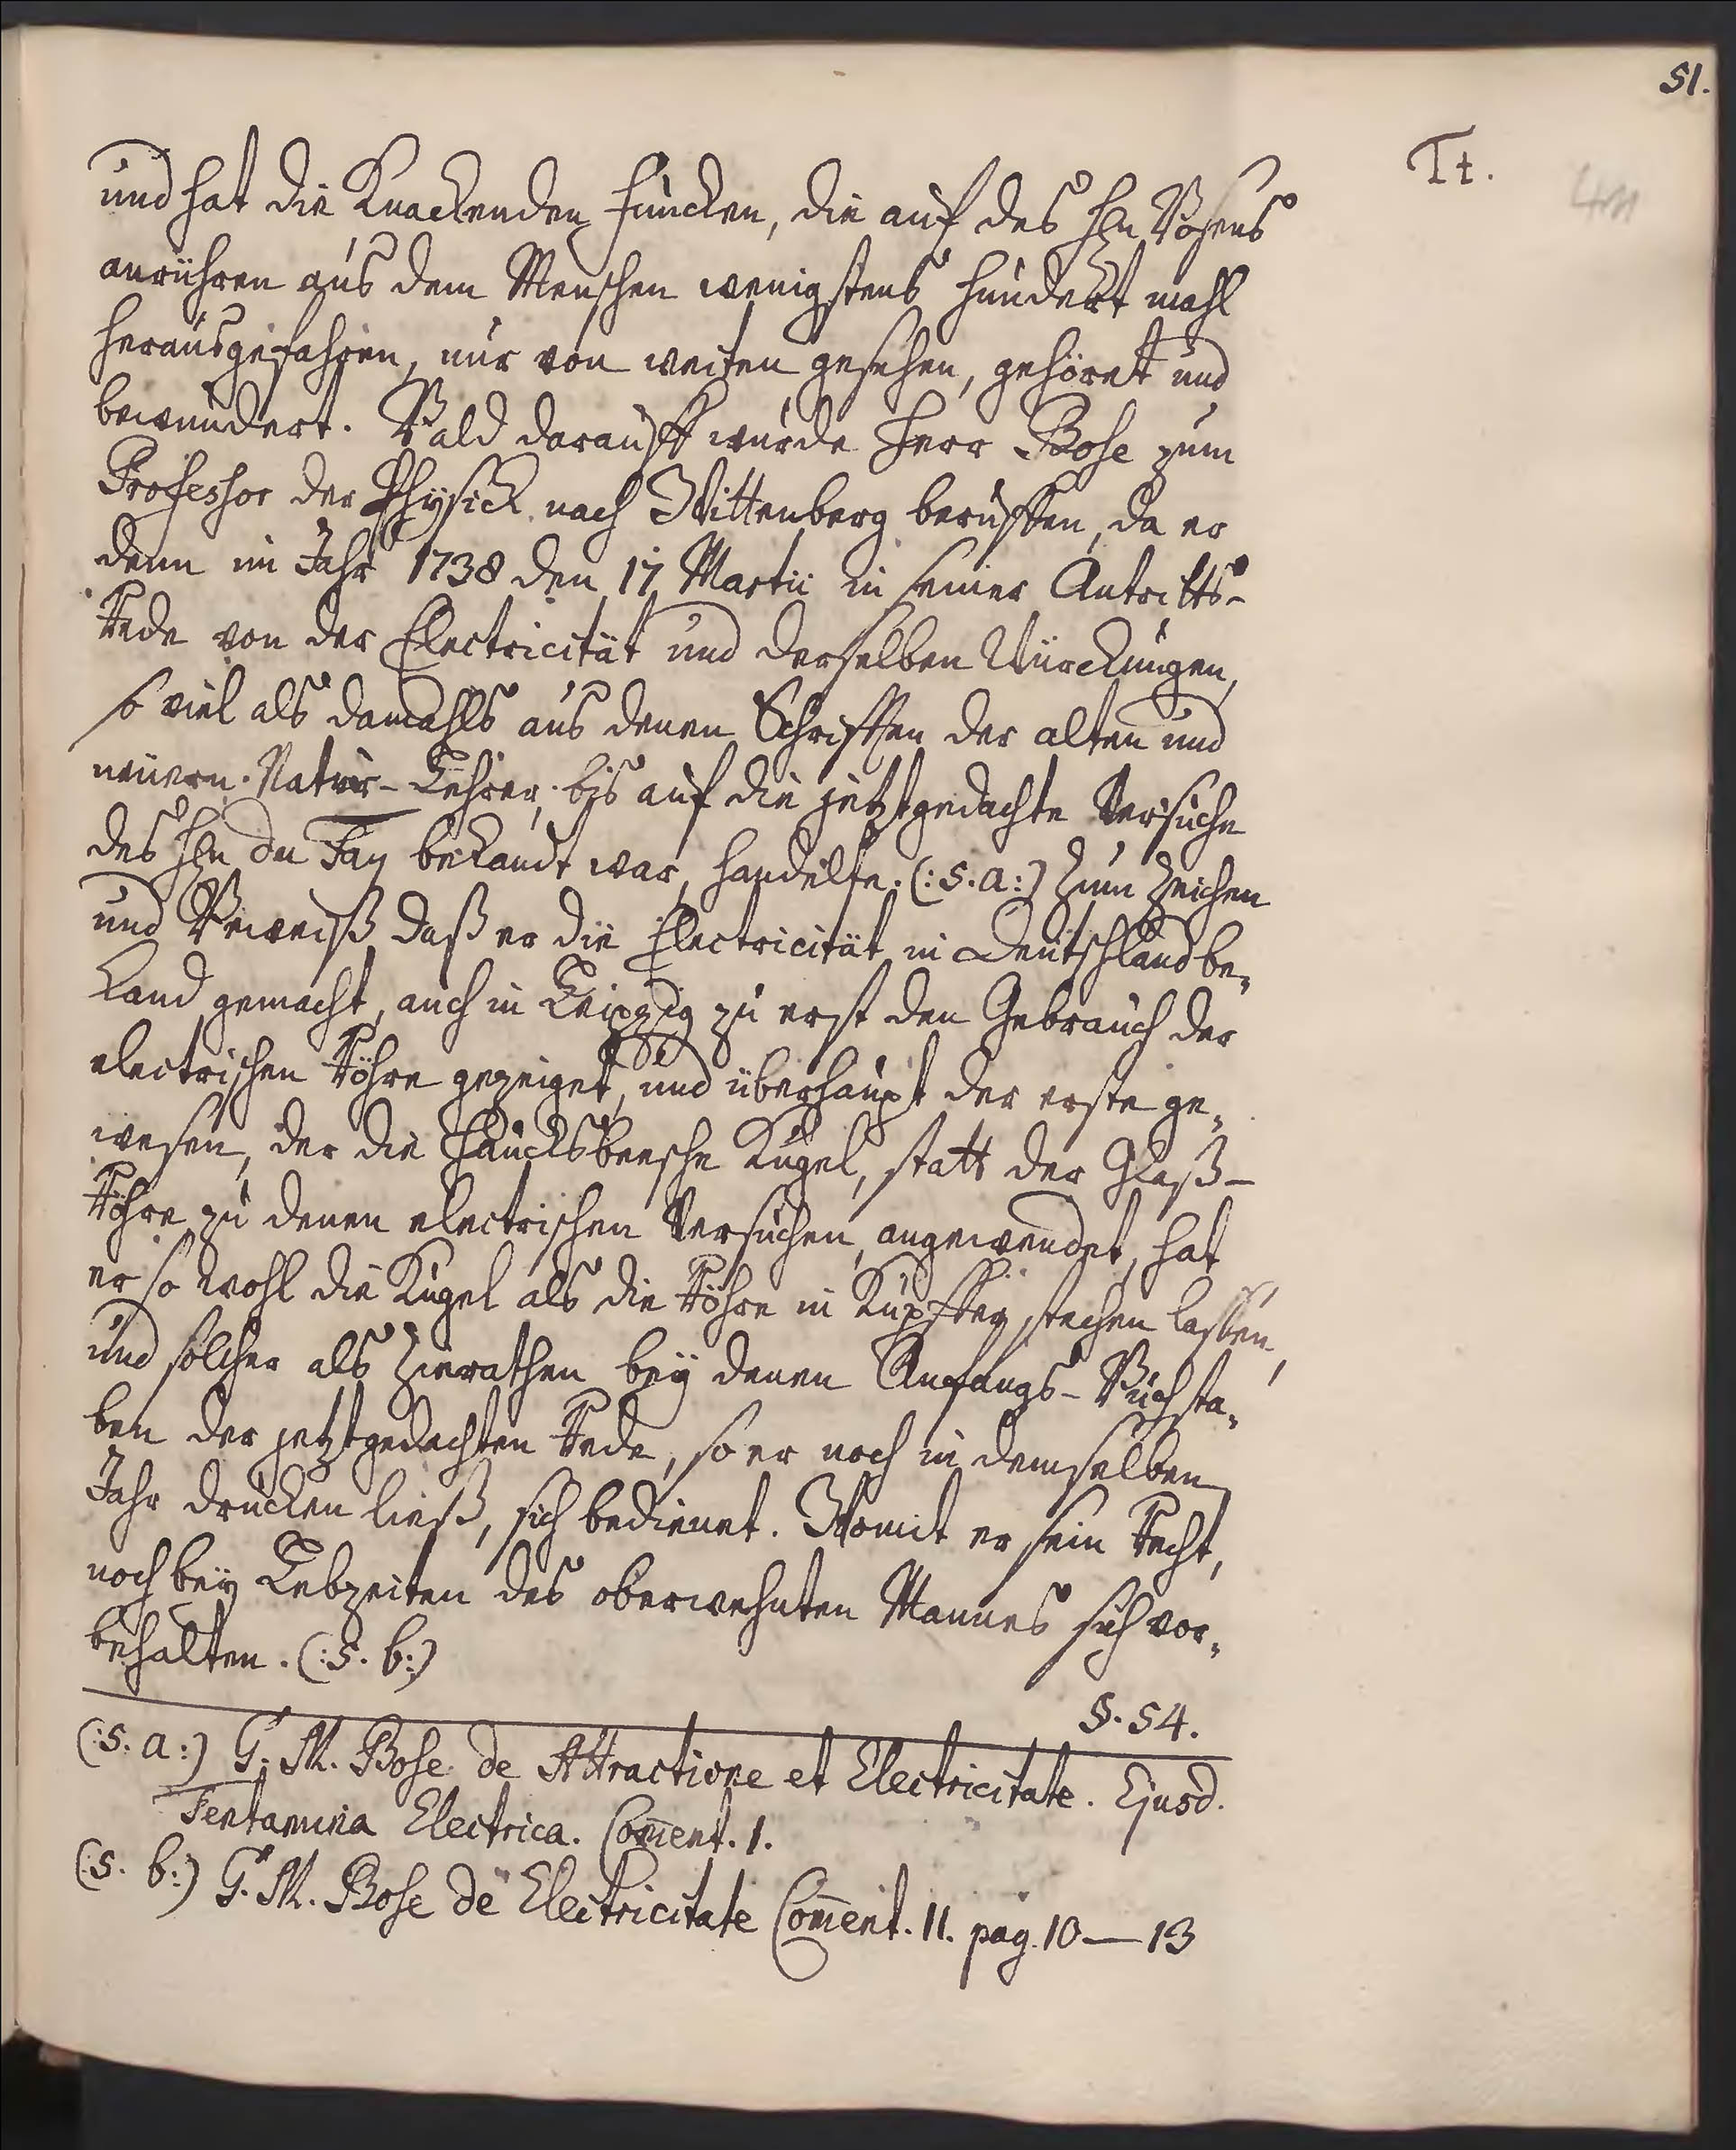 51.
Tt.
und hat die Knackenden Funcken, die auf des Hln Bosens
anrühren aus dem Menschen wenigstens hundert mahl
herausgefahren, nur von weiten gesehen, gehöret und
bewundert. Bald darauff wurde Herr Bose zum
Professor der Physick nach Wittenberg beruffen, da er
denn im Jahr 1738 den 17 Martii in seiner Antritts-
Rede von der Electricität und derselben Würckungen,
so viel als damahls aus denen Schrifften der alten und
neuern Natur-Lehrer, bis auf die jetztgedachte Versuche
des Hln du Fay bekandt war, handelte. (:s. a:) Zum Zeichen
und Beweiß, daß er die Electricität in Deutschland be-
kand gemacht, auch in Leipzig zu erst den Gebrauch der
electrischen Röhre gezeiget, und überhaupt der erste ge-
wesen, der die Haucksbeesche Kugel, statt der Glaß-
Röhre zu denen electrischen Versuchen, angewendet, hat
er so wohl die Kugel als die Röhre in Kupffer stechen lassen,
und solcher als Zierathen bey denen Anfangs-Buchsta-
ben der jetztgedachten Rede, so er noch in demselben
Jahr drucken ließ, sich bedienet. Womit er sein Recht,
noch bey Lebzeiten des oberwehnten Mannes sich vor-
behalten. (:s. b:)
§. 54.
(:s. a:) G. M. Bose de Attractione et Electricitate. Ejusd.
Tentamina Electrica. Com̅ent. I.
(:s. b:) G. M. Bose de Electricitate Com̅ent. II. pag. 10—13